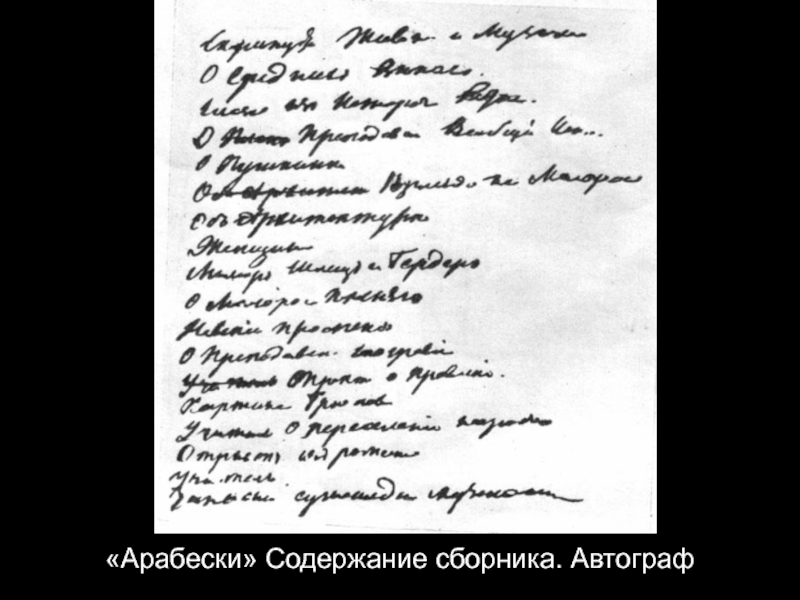 Скульпт. Живоп. и Музыка
О Средних Веках.
Глава из Историч. Рома.
О План Преподаван Всеобщей Ис...
О Пушкине
Об Архитект Взгляд на Малорос
Об Архитектуре
Женщина
Миллер Шлецер и Гердер
О Малорос песнях
Невский проспект
О Преподаван. географии
Учитель О
Картина Брюлов
Учитель О переселении народов
Отрывок из романа
Учитель
Записки сумасшедш музыканта
«Арабески» Содержание сборника. Автограф